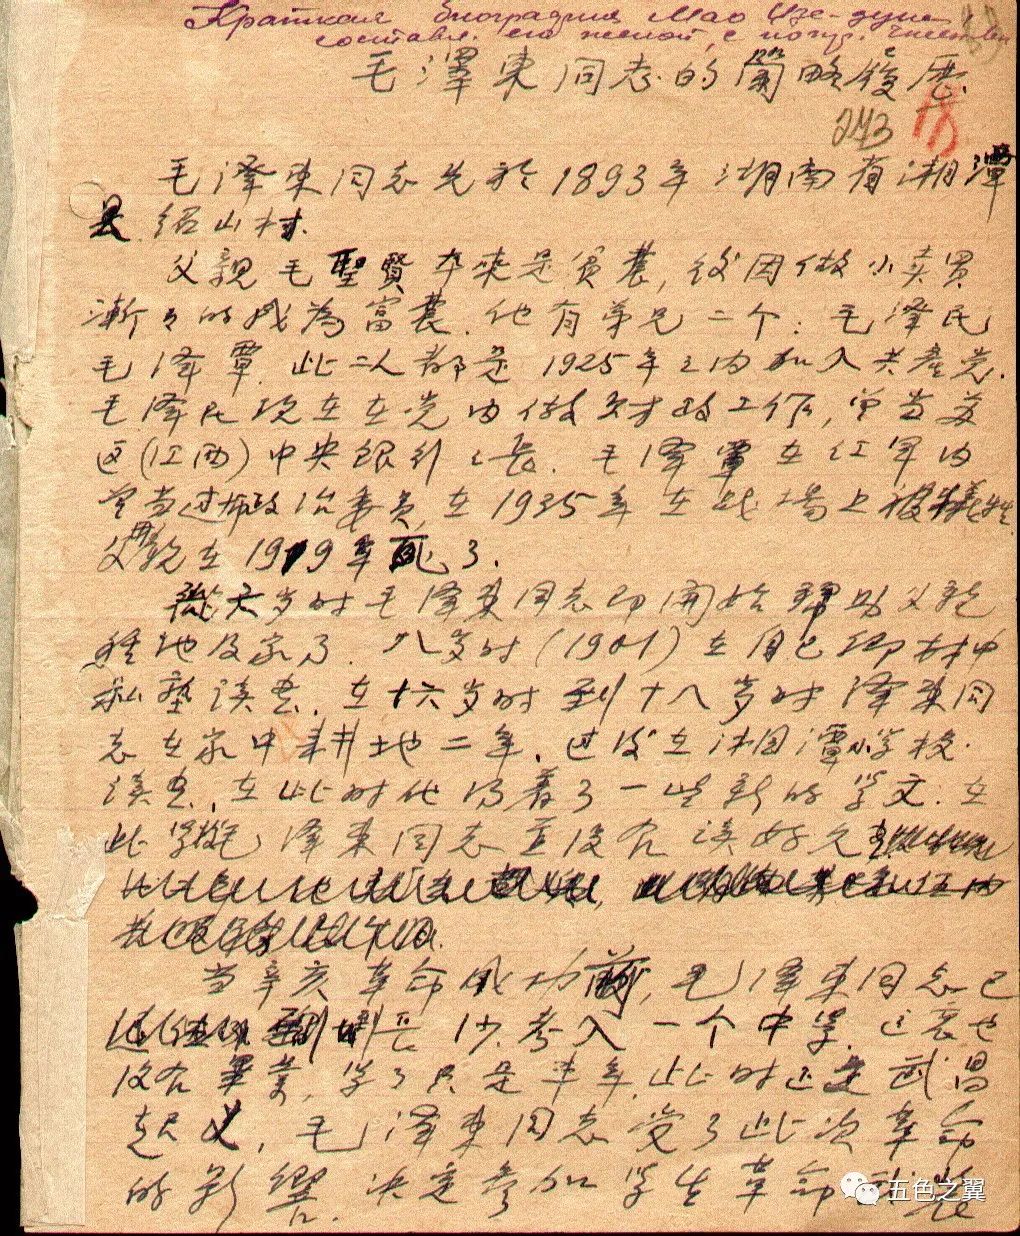 Краткая биография Мао Цзе-дуна,
составл. его женой, с
毛澤東同志的簡略履历
243 18
毛泽東同志先於1893年湖南省湘潭
县绍山村.
父親毛聖賢本来是贫農,後因做小卖買
漸々的成為富農.他有弟兄二个:毛泽民
毛泽覃.此二人都是1925年之内加入共產党.
毛泽民现在在党内做财政工作,曾当苏
区(江西)中央銀行行长.毛泽覃在红军内
曾当过师政治委员,在1935年在战場上被犠牲
父親在1919年死了.
六岁时毛泽東同志即開始帮助父親
種地及家了.八岁时(1901)在自己鄉村中
私塾读書.在十六岁时到十八岁时泽東同
志在家中耕地二年.过後在湘潭小学校.
读書,在此时他得着了一些新的学文.在
此学校毛泽東同志並没有读好久
当辛亥革命成功前,毛泽東同志已
長沙考入一个中学.这裏也
没有畢業,学了只是半年.此时正是武昌
起义,毛泽東同志受了此次革命
的影響.决定参加学生革命武装
五色之翼